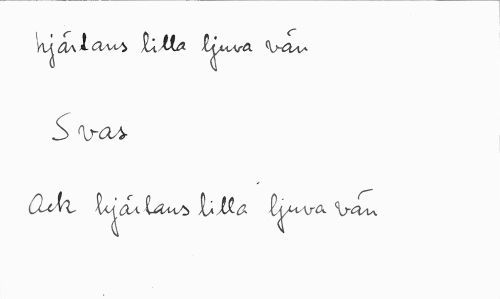 hjärtans lilla ljuva vän
Svas
Ack hjärtans lilla ljuva vän